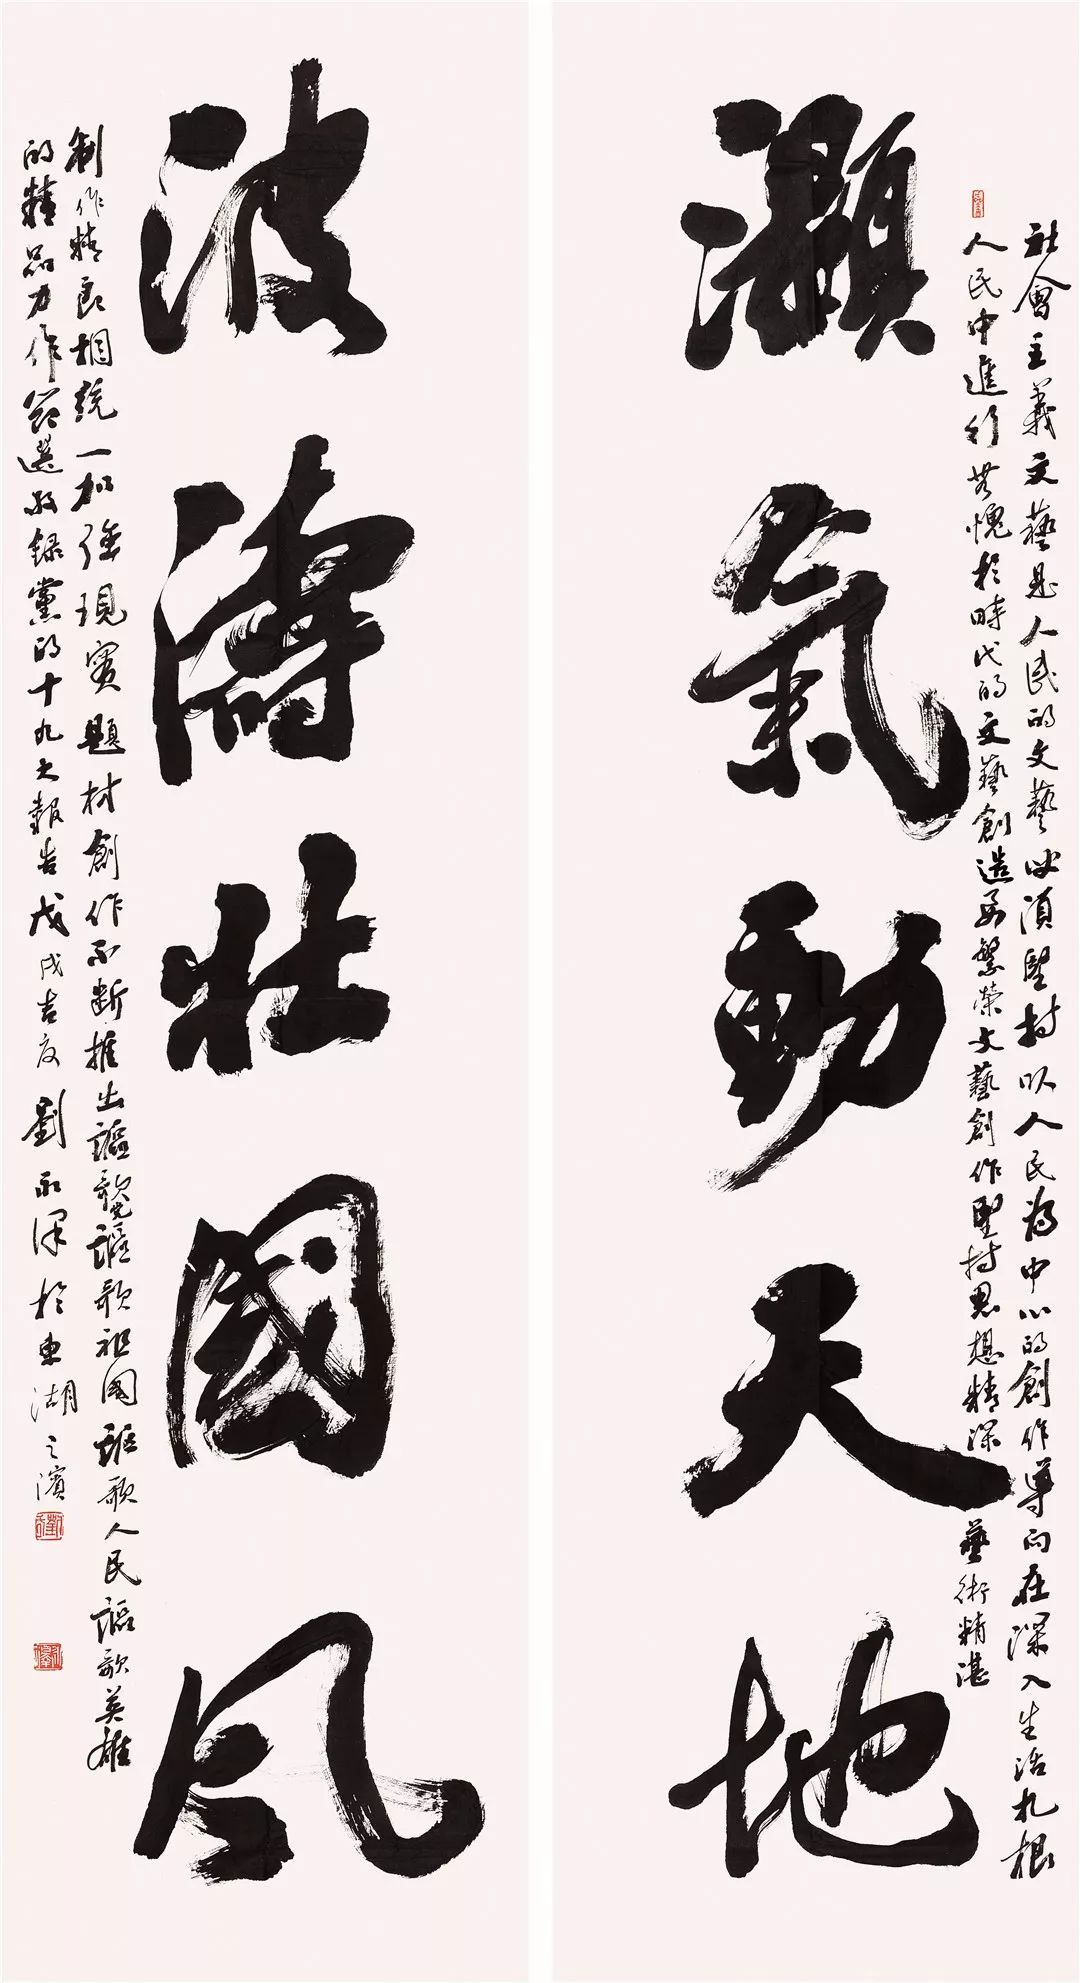 社會主義文藝是人民的文藝必須堅持以人民為中心的創作導向在深入生活扎根
人民中進行無愧於時代的文藝創造要繁榮文藝創作堅持思想精深藝術精湛
灝氣動天地
波濤壯國風
制作精良相統一加強現實題材創作不斷推出謳歌党謳歌祖國謳歌人民謳歌英雄
的精品力作節選敬錄黨的十九大報告戊戌吉劉永澤於東湖之濱